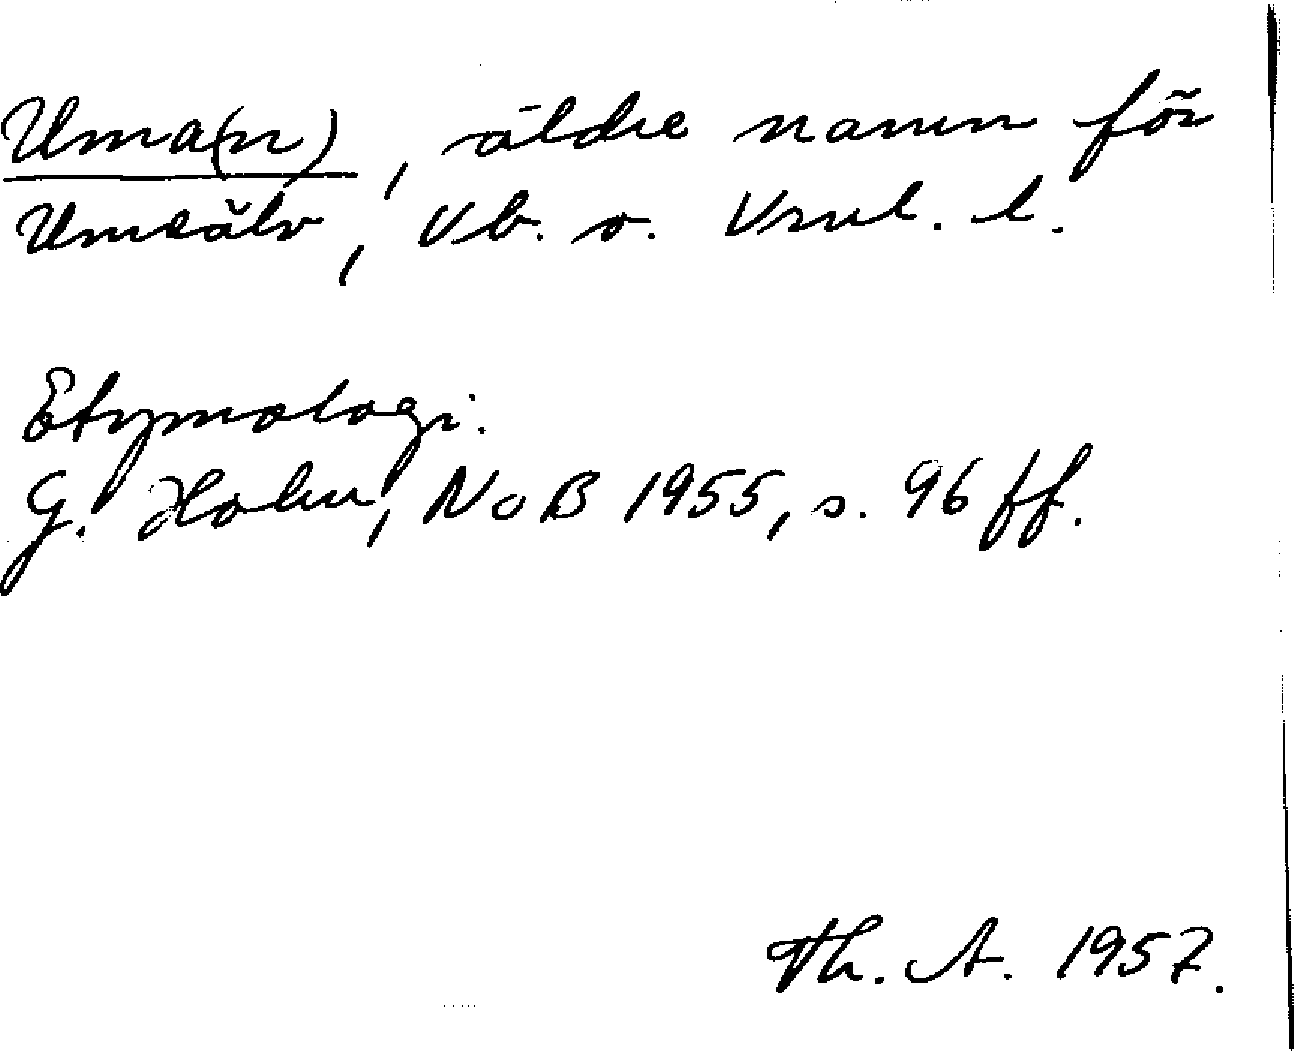 Uma(n), äldre namn för
Umeälv, Vb. o. Vrml. l.
Etymologi.
G. Holm, NoB 1955, s. 96 ff.
Th. A. 1957.